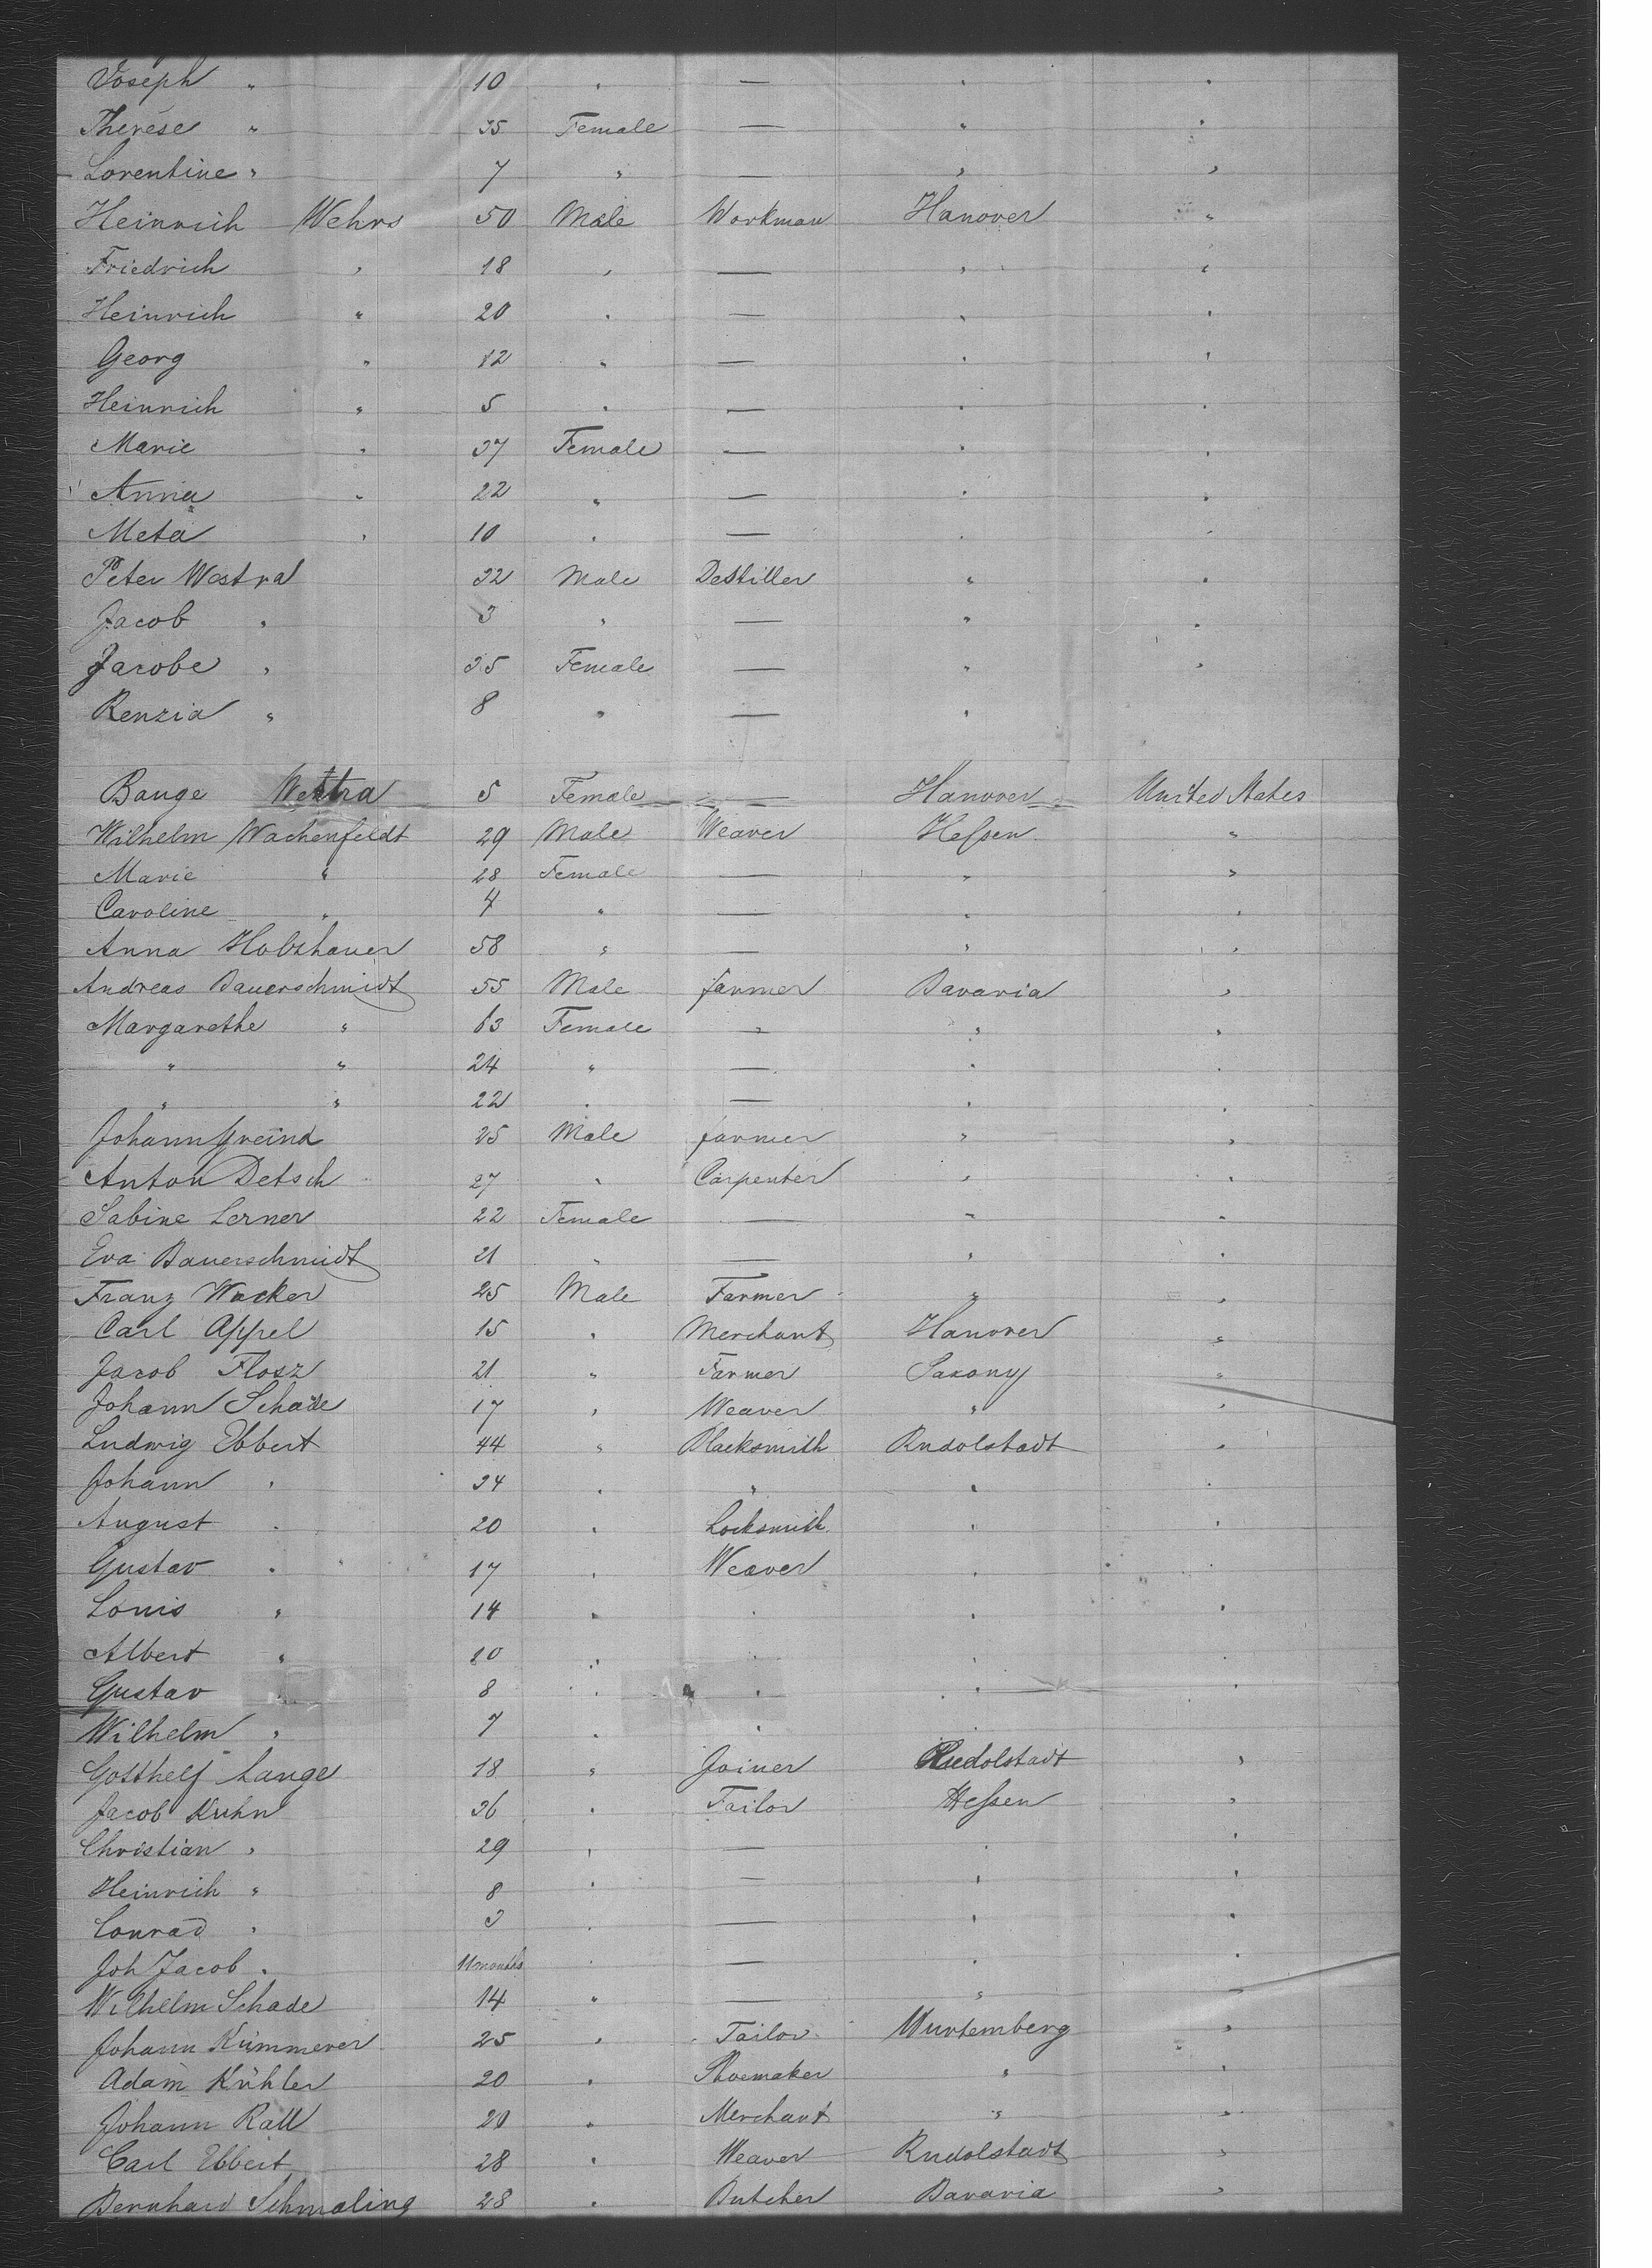 Joseph " 10 " — " "
Therése " 35 Female — " "
Lorentine " 7 " — " "
Heinrich Wehrs 50 Male Workman Hanover "
Friedrich " 18 " — " "
Heinrich " 20 " — " "
Georg " 12 " — " "
Heinrich " 5 " — " "
Marie " 37 Female — " "
Anna " 22 " — " "
Meta " 10 " — " "
Peter Westra 32 Male Destiller " "
Jacob " 3 " — " "
Jacobe " 35 Female — " "
Renzia " 8 " — "
Bauge Westra 5 Female — Hanover United States
Wilhelm Wachenfeldt 29 Male Weaver Hessen "
Marie " 28 Female — " "
Caroline " 4 " — " "
Anna Holzhauer 58 " — " "
Andreas Bauerschmidt 55 Male farmer Bavaria "
Margarethe " 63 Female " " "
" " 24 " — " "
" " 22 " — " "
Johann 25 Male farmer " "
Anton Detsch 27 " Carpenter " "
Sabine Lerner 22 Female — " "
Eva Bauerschmidt 21 " — " "
Franz Wacker 25 Male Farmer " "
Carl Appel 15 " Merchant Hanover "
Jacob Flosz 21 " Farmer Saxony "
Johann Schade 17 " Weaver " "
Ludwig Ebbert 44 " Blacksmith Rudolstadt "
Johann " 24 " " " "
August " 20 " Locksmith " "
Gustav " 17 " Weaver " "
Louis " 14 " " " "
Albert " 10 " " " "
Gustav " 8 " " " "
Wilhelm " 7 " " "
Gotthelf Lange 18 " Joiner Rudolstadt "
Jacob Kuhn 36 " Tailor Hessen "
Christian " 29 " — " "
Heinrich " 8 " — " "
Conrad " 3 " — " "
Joh Jacob " 11 months " — " "
Wilhelm Schade 14 " — " "
Johann Kümmerer 25 " Tailor Wurtemberg "
Adam Kühler 20 " Shoemaker " "
Johann Rall 20 " Merchant " "
Carl Ebbert 28 " Weaver Rudolstadt "
Bernhard Schmaling 28 " Butcher Bavaria "